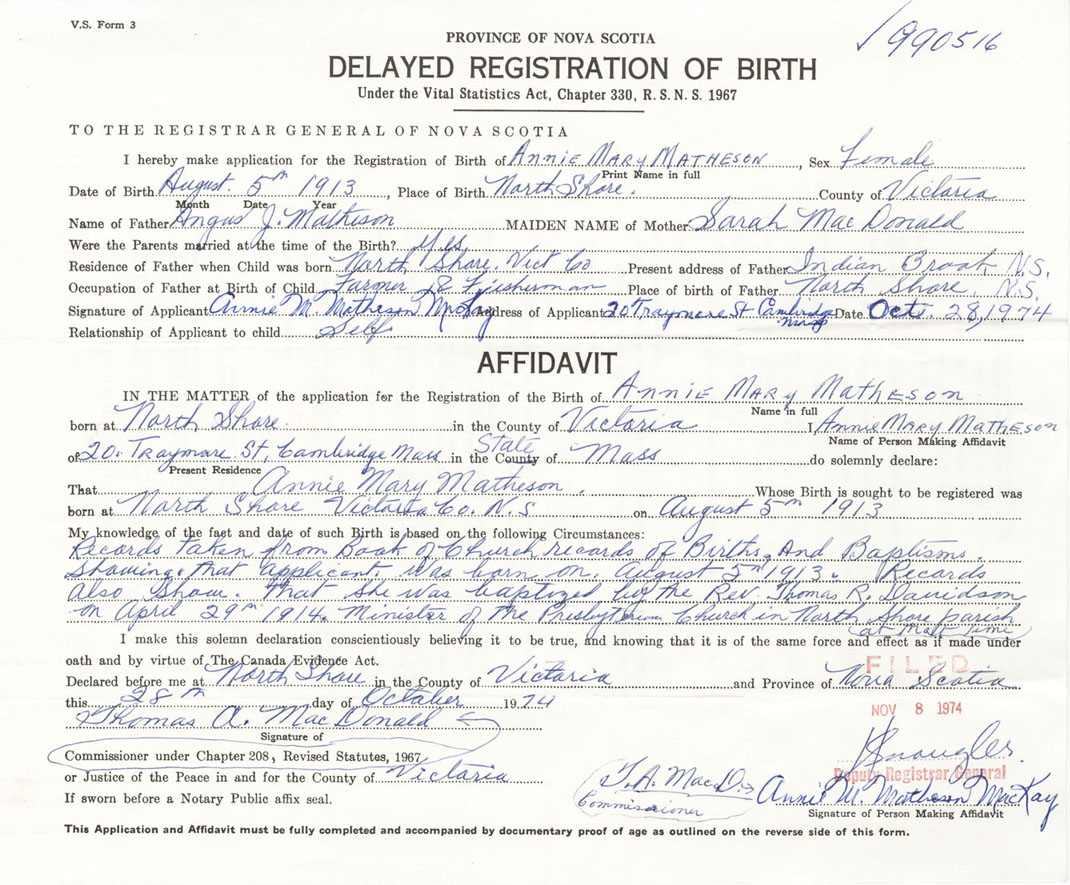 V.S. Form 3
✓990516
PROVINCE OF NOVA SCOTIA
DELAYED REGISTRATION OF BIRTH
Under the Vital Statistics Act, Chapter 330, R.S.N.S. 1967
TO THE REGISTRAR GENERAL OF NOVA SCOTIA
I hereby make application for the Registration of Birth of Annie Mary Matheson, Sex Female
Print Name in full
Date of Birth August. 5th 1913, Place of Birth North Shore. County of Victoria
Month Date Year
Name of Father Angus J. Mathison MAIDEN NAME of Mother Sarah MacDonald
Were the Parents married at the time of the Birth? Yes
Residence of Father when Child was born North Shore. Vict Co Present address of Father Indian Brook N.S.
Occupation of Father at Birth of Child Farmer & Fisherman Place of birth of Father North Shore. N.S.
Signature of Applicant Annie M. Matheson McKay Address of Applicant 20 Traymore St Cambridge Mass Date Oct. 28, 1974
Relationship of Applicant to child Self
AFFIDAVIT
IN THE MATTER of the application for the Registration of the Birth of Annie Mary Matheson
Name in full
born at North Shore. in the County of Victoria I, Annie Mary Matheson
Name of Person Making Affidavit
State
of 20. Traymore. St, Cambridge Mass in the County of Mass do solemnly declare:
Present Residence
That Annie Mary Matheson. Whose Birth is sought to be registered was
born at North Shore Victoria Co. N.S on August 5th 1913
My knowledge of the fact and date of such Birth is based on the following Circumstances:
Records taken from Book of Church records of Births. And Baptisms.
Showing that applicant, was born on. August 5th 1913. Records
also Show. that She was baptized by the Rev. Thomas R. Davidson
on April 29th 1914. Minister of the Presbyterian Church in North Shore parish
at that Time
I make this solemn declaration conscientiously believing it to be true, and knowing that it is of the same force and effect as if made under
oath and by virtue of The Canada Evidence Act.
FILED
Declared before me at North Shore in the County of Victoria and Province of Nova Scotia
this 28th day of October 1974
NOV 8 1974
Thomas A. MacDonald
Signature of
Commissioner under Chapter 208, Revised Statutes, 1967
or Justice of the Peace in and for the County of Victoria
Deputy Registrar General
T.A. MacD.
Commissioner
Annie M. Matheson MacKay
If sworn before a Notary Public affix seal.
Signature of Person Making Affidavit
This Application and Affidavit must be fully completed and accompanied by documentary proof of age as outlined on the reverse side of this form.